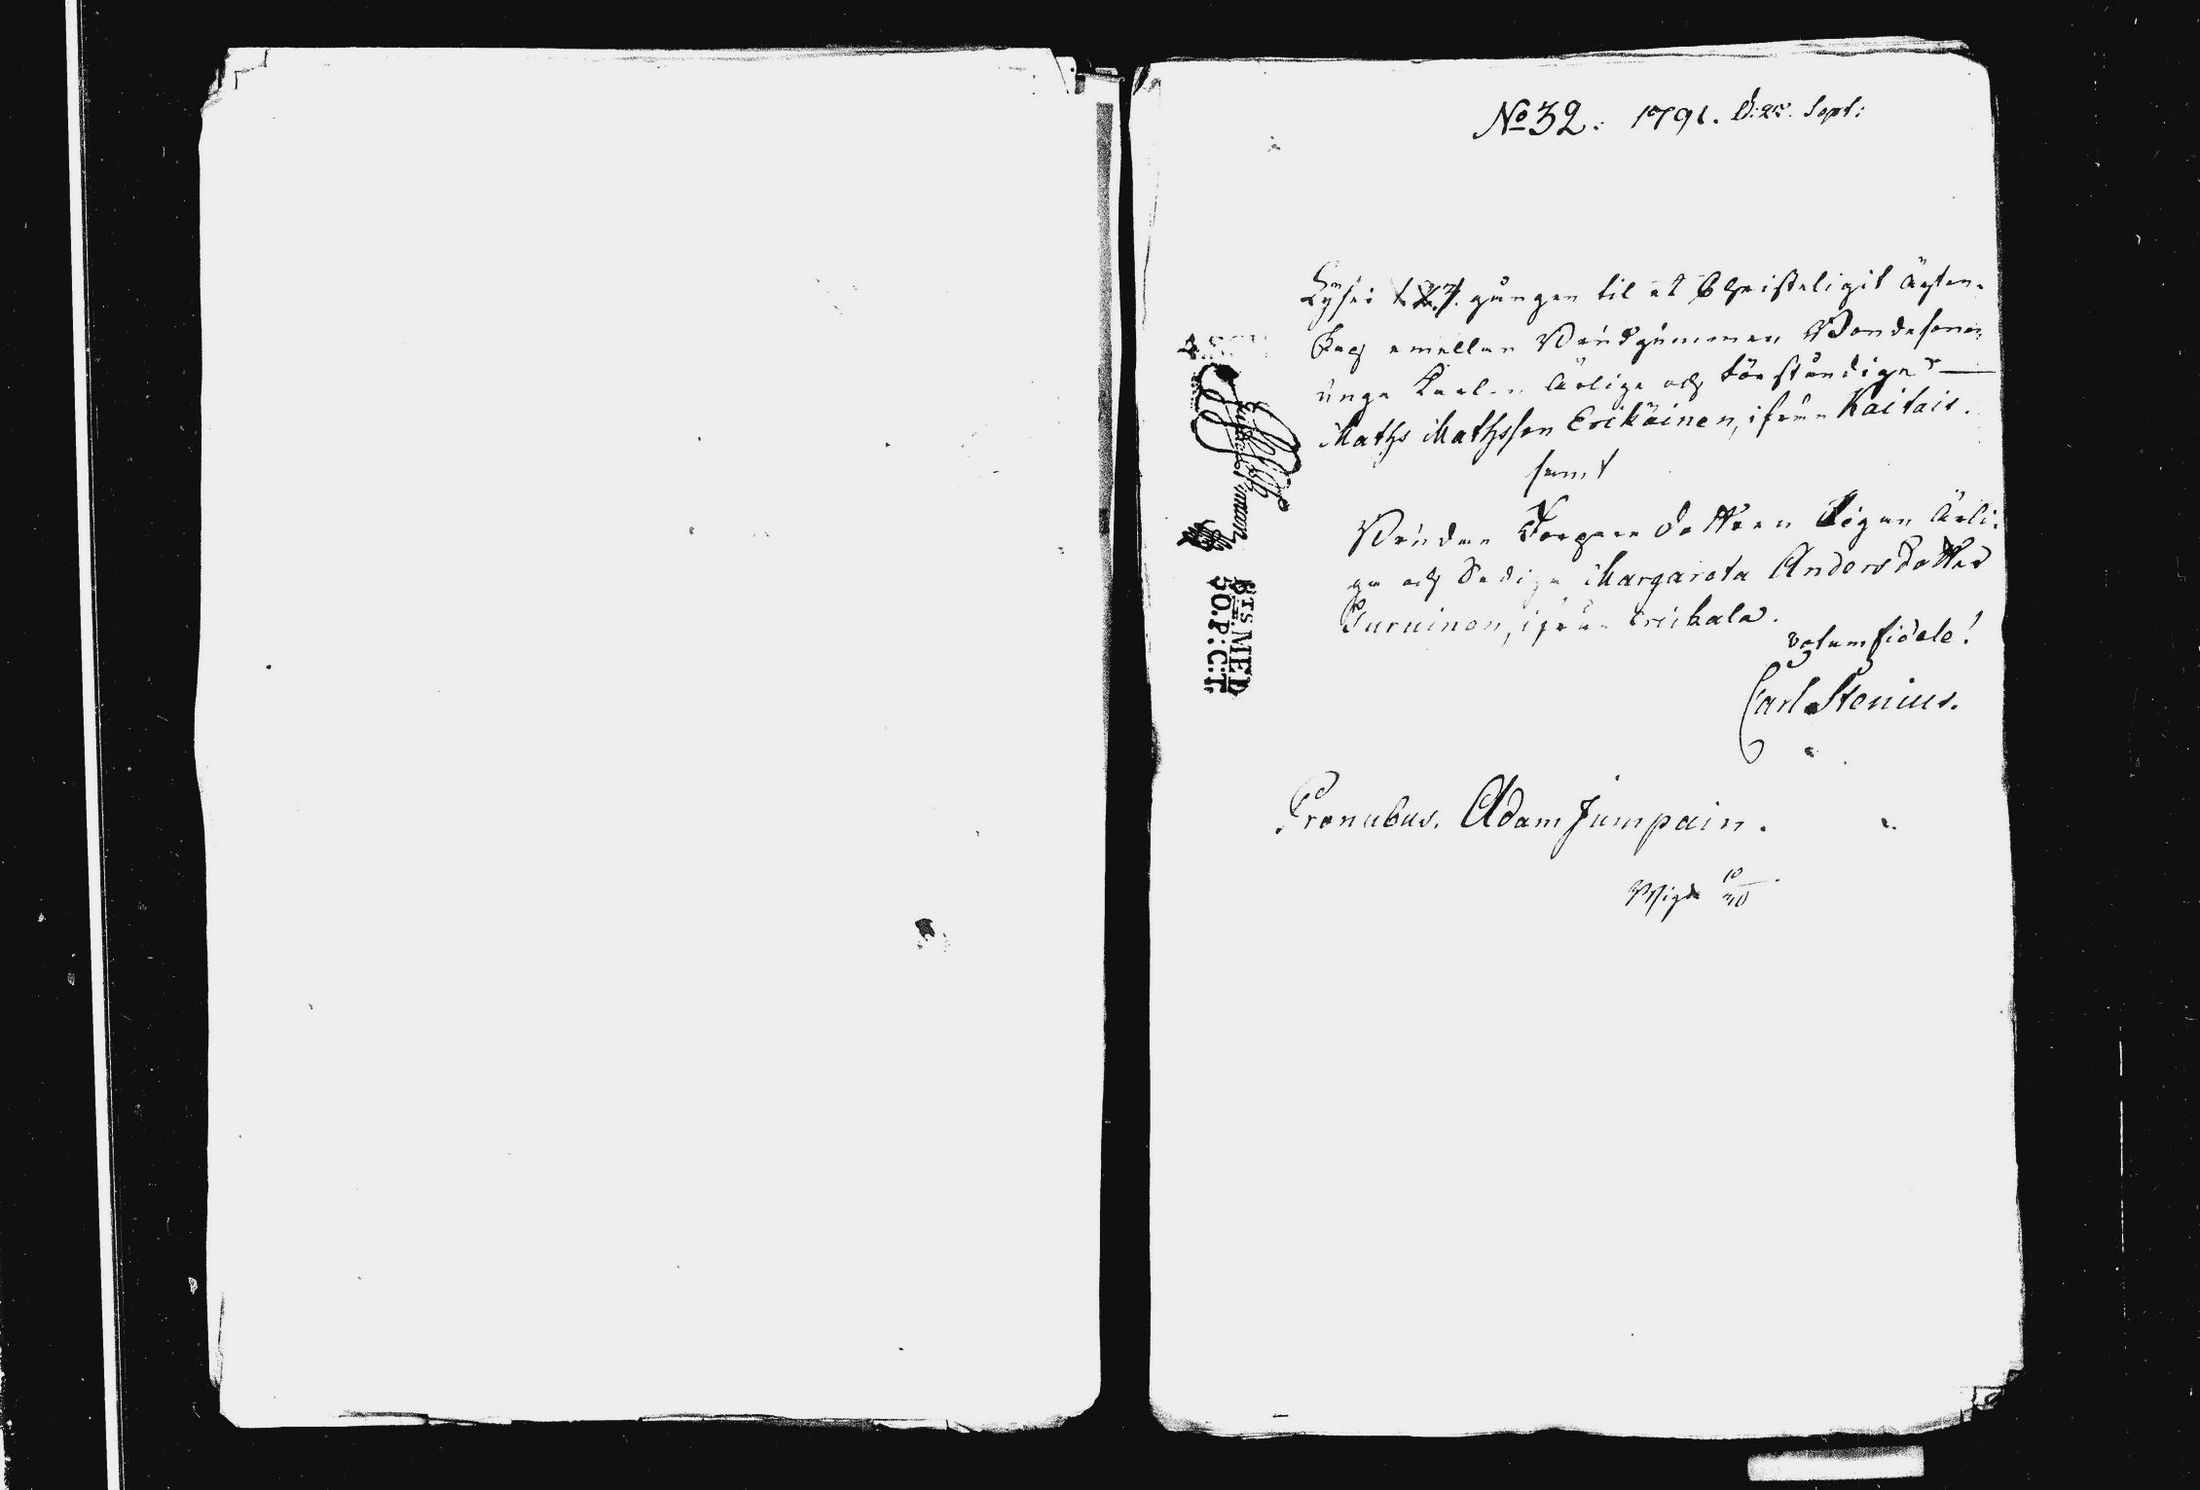 No 32. 1791. d. 25. Sept:
Lyses gången til et Christeligit Ächten-
skap emellan Brudgummen Bondesonen
unge Karlen Ärlige och förståndige
Maths Mathsson Erikäinen, ifrån Kaitais.
samt
Bruden Torpare dottren Pigan Ärli-
ga och Sediga Margareta Andersdotter
Puruinen, ifrån
votum fidele!
Carl Stenius.
Pronubus. Adam Jumpain.
Wigde 10
50.P.:C:T.